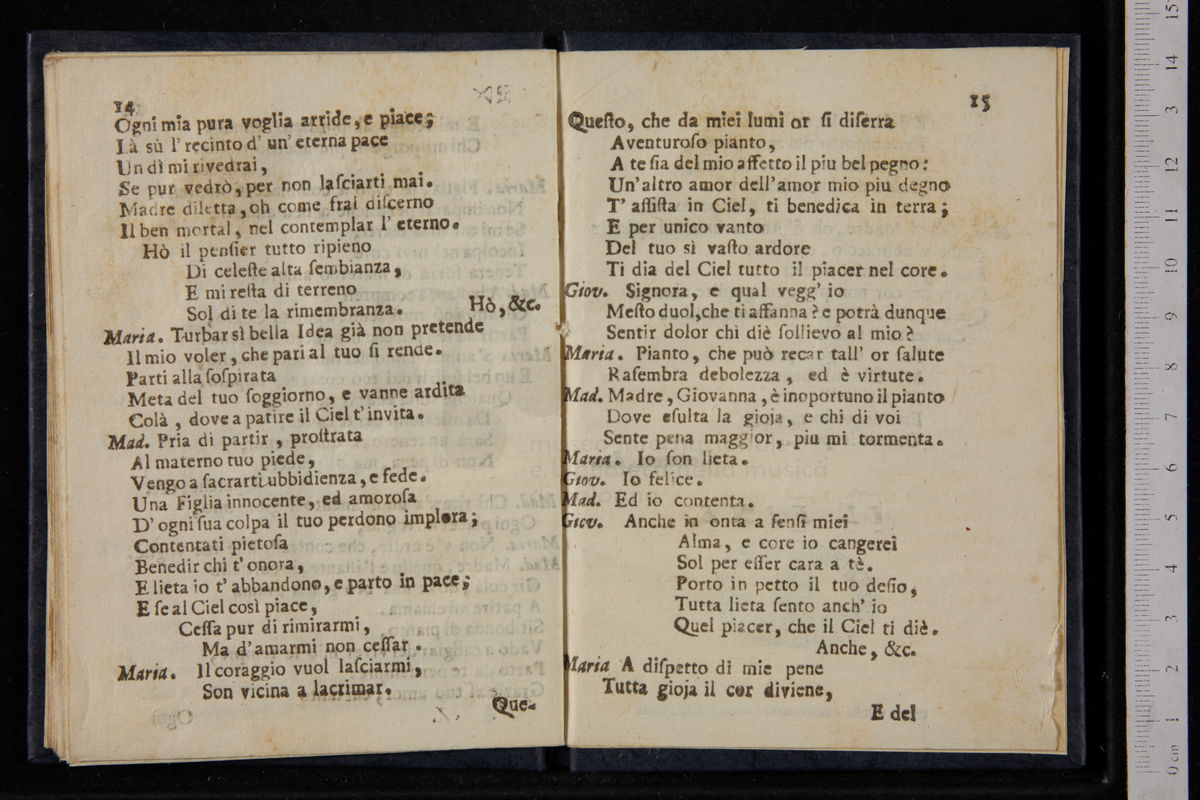 14
Ogni mia pura voglia arride, e piace;
Là sù l'recinto d'un'eterna pace
Un dì mi rivedrai,
Se pur vedrò, per non laſciarti mai.
Madre diletta, oh come fral diſcerno
Il ben mortal, nel contemplar l'eterno.
Hò il penſier tutto ripieno
Di celeſte alta ſembianza,
E mi reſta di terreno
Sol di te la rimembranza. Hò, &c.
Maria. Turbar sì bella Idea già non pretende
Il mio voler, che pari al tuo ſi rende.
Parti alla ſoſpirata
Meta del tuo ſoggiorno, e vanne ardita
Colà, dove a patire il Ciel t'invita.
Mad. Pria di partir, proſtrata
Al materno tuo piede,
Vengo a ſacrarti ubbidienza, e fede.
Una Figlia innocente, ed amoroſa
D'ogni ſua colpa il tuo perdono implora;
Contentati pietoſa
Benedir chi t'onora,
E lieta io t'abbandono, e parto in pace;
E ſe al Ciel così piace,
Ceſſa pur di rimirarmi,
Ma d'amarmi non ceſſar.
Maria. Il coraggio vuol laſciarmi,
Son vicina a lacrimar.
Que-
15
Queſto, che da miei lumi or ſi diſerra
Aventuroſo pianto,
A te ſia del mio affetto il piu bel pegno:
Un'altro amor dell'amor mio piu degno
T'aſſiſta in Ciel, ti benedica in terra;
E per unico vanto
Del tuo sì vaſto ardore
Ti dia del Ciel tutto il piacer nel core.
Giov. Signora, e qual vegg'io
Meſto duol, che ti affanna? e potrà dunque
Sentir dolor chi diè ſollievo al mio?
Maria. Pianto, che può recar tall'or ſalute
Raſembra debolezza, ed è virtute.
Mad. Madre, Giovanna, è inoportuno il pianto
Dove eſulta la gioja, e chi di voi
Sente pena maggior, piu mi tormenta.
Maria. Io ſon lieta.
Giov. Io felice.
Mad. Ed io contenta.
Giov. Anche in onta a ſenſi miei
Alma, e core io cangerei
Sol per eſſer cara a tè.
Porto in petto il tuo deſio,
Tutta lieta ſento anch'io
Quel piacer, che il Ciel ti diè.
Anche, &c.
Maria A diſpetto di mie pene
Tutta gioja il cor diviene,
E del